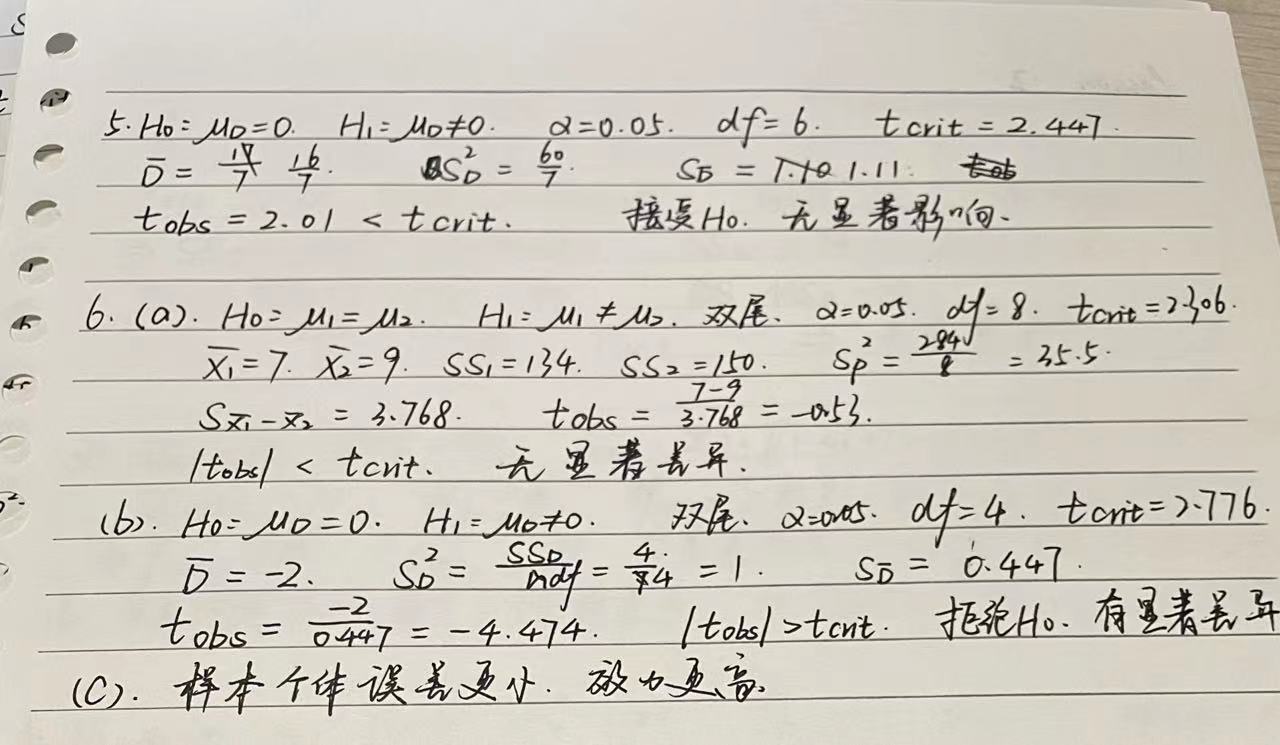 5. H₀: μD=0. H₁: μD≠0. α=0.05. df=6. tcrit=2.447.
D̄ = 16/7. S²D = 60/7. SD̄ = 1.11.
tobs = 2.01 < tcrit. 接受H₀. 无显著影响.
6. (a). H₀: μ₁=μ₂. H₁: μ₁≠μ₂. 双尾. α=0.05. df=8. tcrit=2.306.
X̄₁=7. X̄₂=9. SS₁=134. SS₂=150. Sp² = 284/8 = 35.5.
Sx̄₁-x̄₂ = 3.768. tobs = 7-9/3.768 = -0.53.
|tobs| < tcrit. 无显著差异.
(b). H₀: μD=0. H₁: μD≠0. 双尾. α=0.05. df=4. tcrit=2.776.
D̄ = -2. S²D = SSD/df = 4/4 = 1. SD̄ = 0.447.
tobs = -2/0.447 = -4.474. |tobs|>tcrit. 拒绝H₀. 有显著差异
(C). 样本个体误差更小. 效力更高.